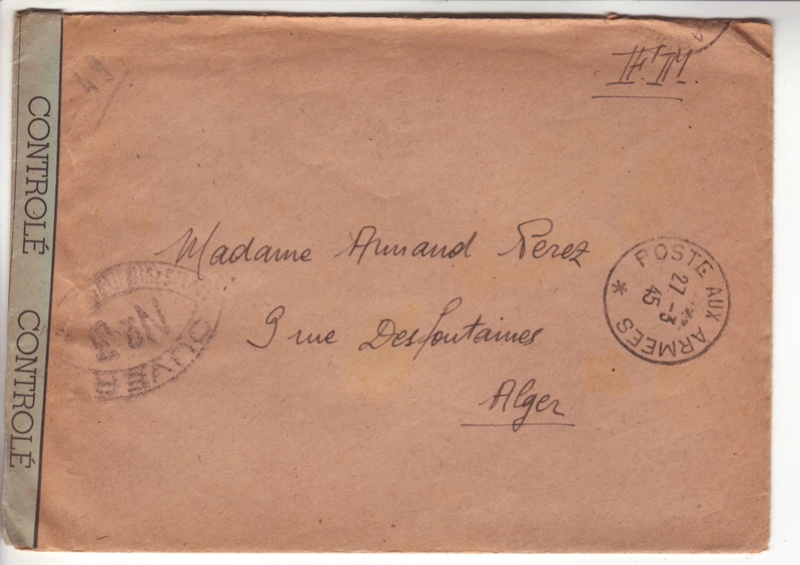 CONTROLÉ CONTROLÉ
49
F.M.
Madame Armand Perez
9 rue Desfontaines
Alger
POSTE AUX ARMEES *
27 -3
45